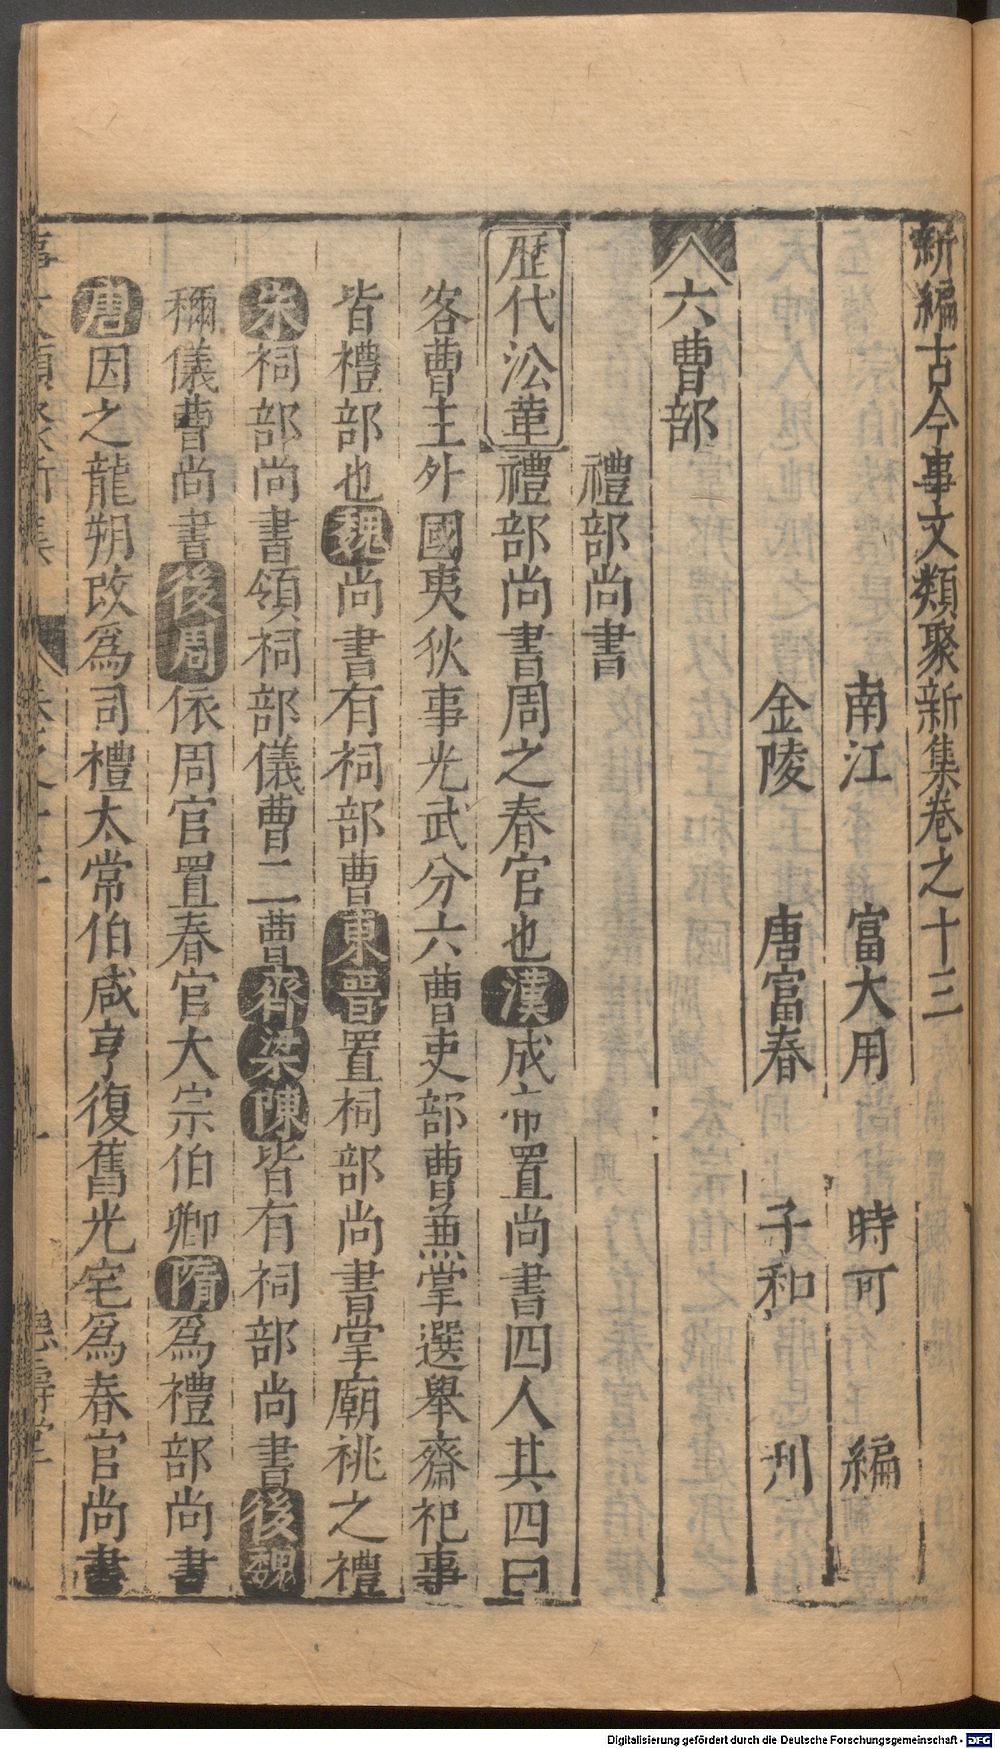 新編古今事文類聚新集卷之十三
南江　富大用　時可　編
金陵　唐富春　子和　刋
六曹部
禮部尚書
歷代沿革　禮部尚書周之春官也漢成帝置尚書四人其四曰
客曹主外國夷狄事光武分六曹吏部曹兼掌選舉齋祀事
皆禮部也魏尚書有祠部曹東晉置祠部尚書掌廟祧之禮
宋祠部尚書領祠部儀曹二曹齊梁陳皆有祠部尚書後魏
稱儀曹尚書後周依周官置春官大宗伯卿隋為禮部尚書
唐因之龍朔改為司禮太常伯咸亨復舊光宅為春官尚書
Digitalisierung gefördert durch die Deutsche Forschungsgemeinschaft - DFG